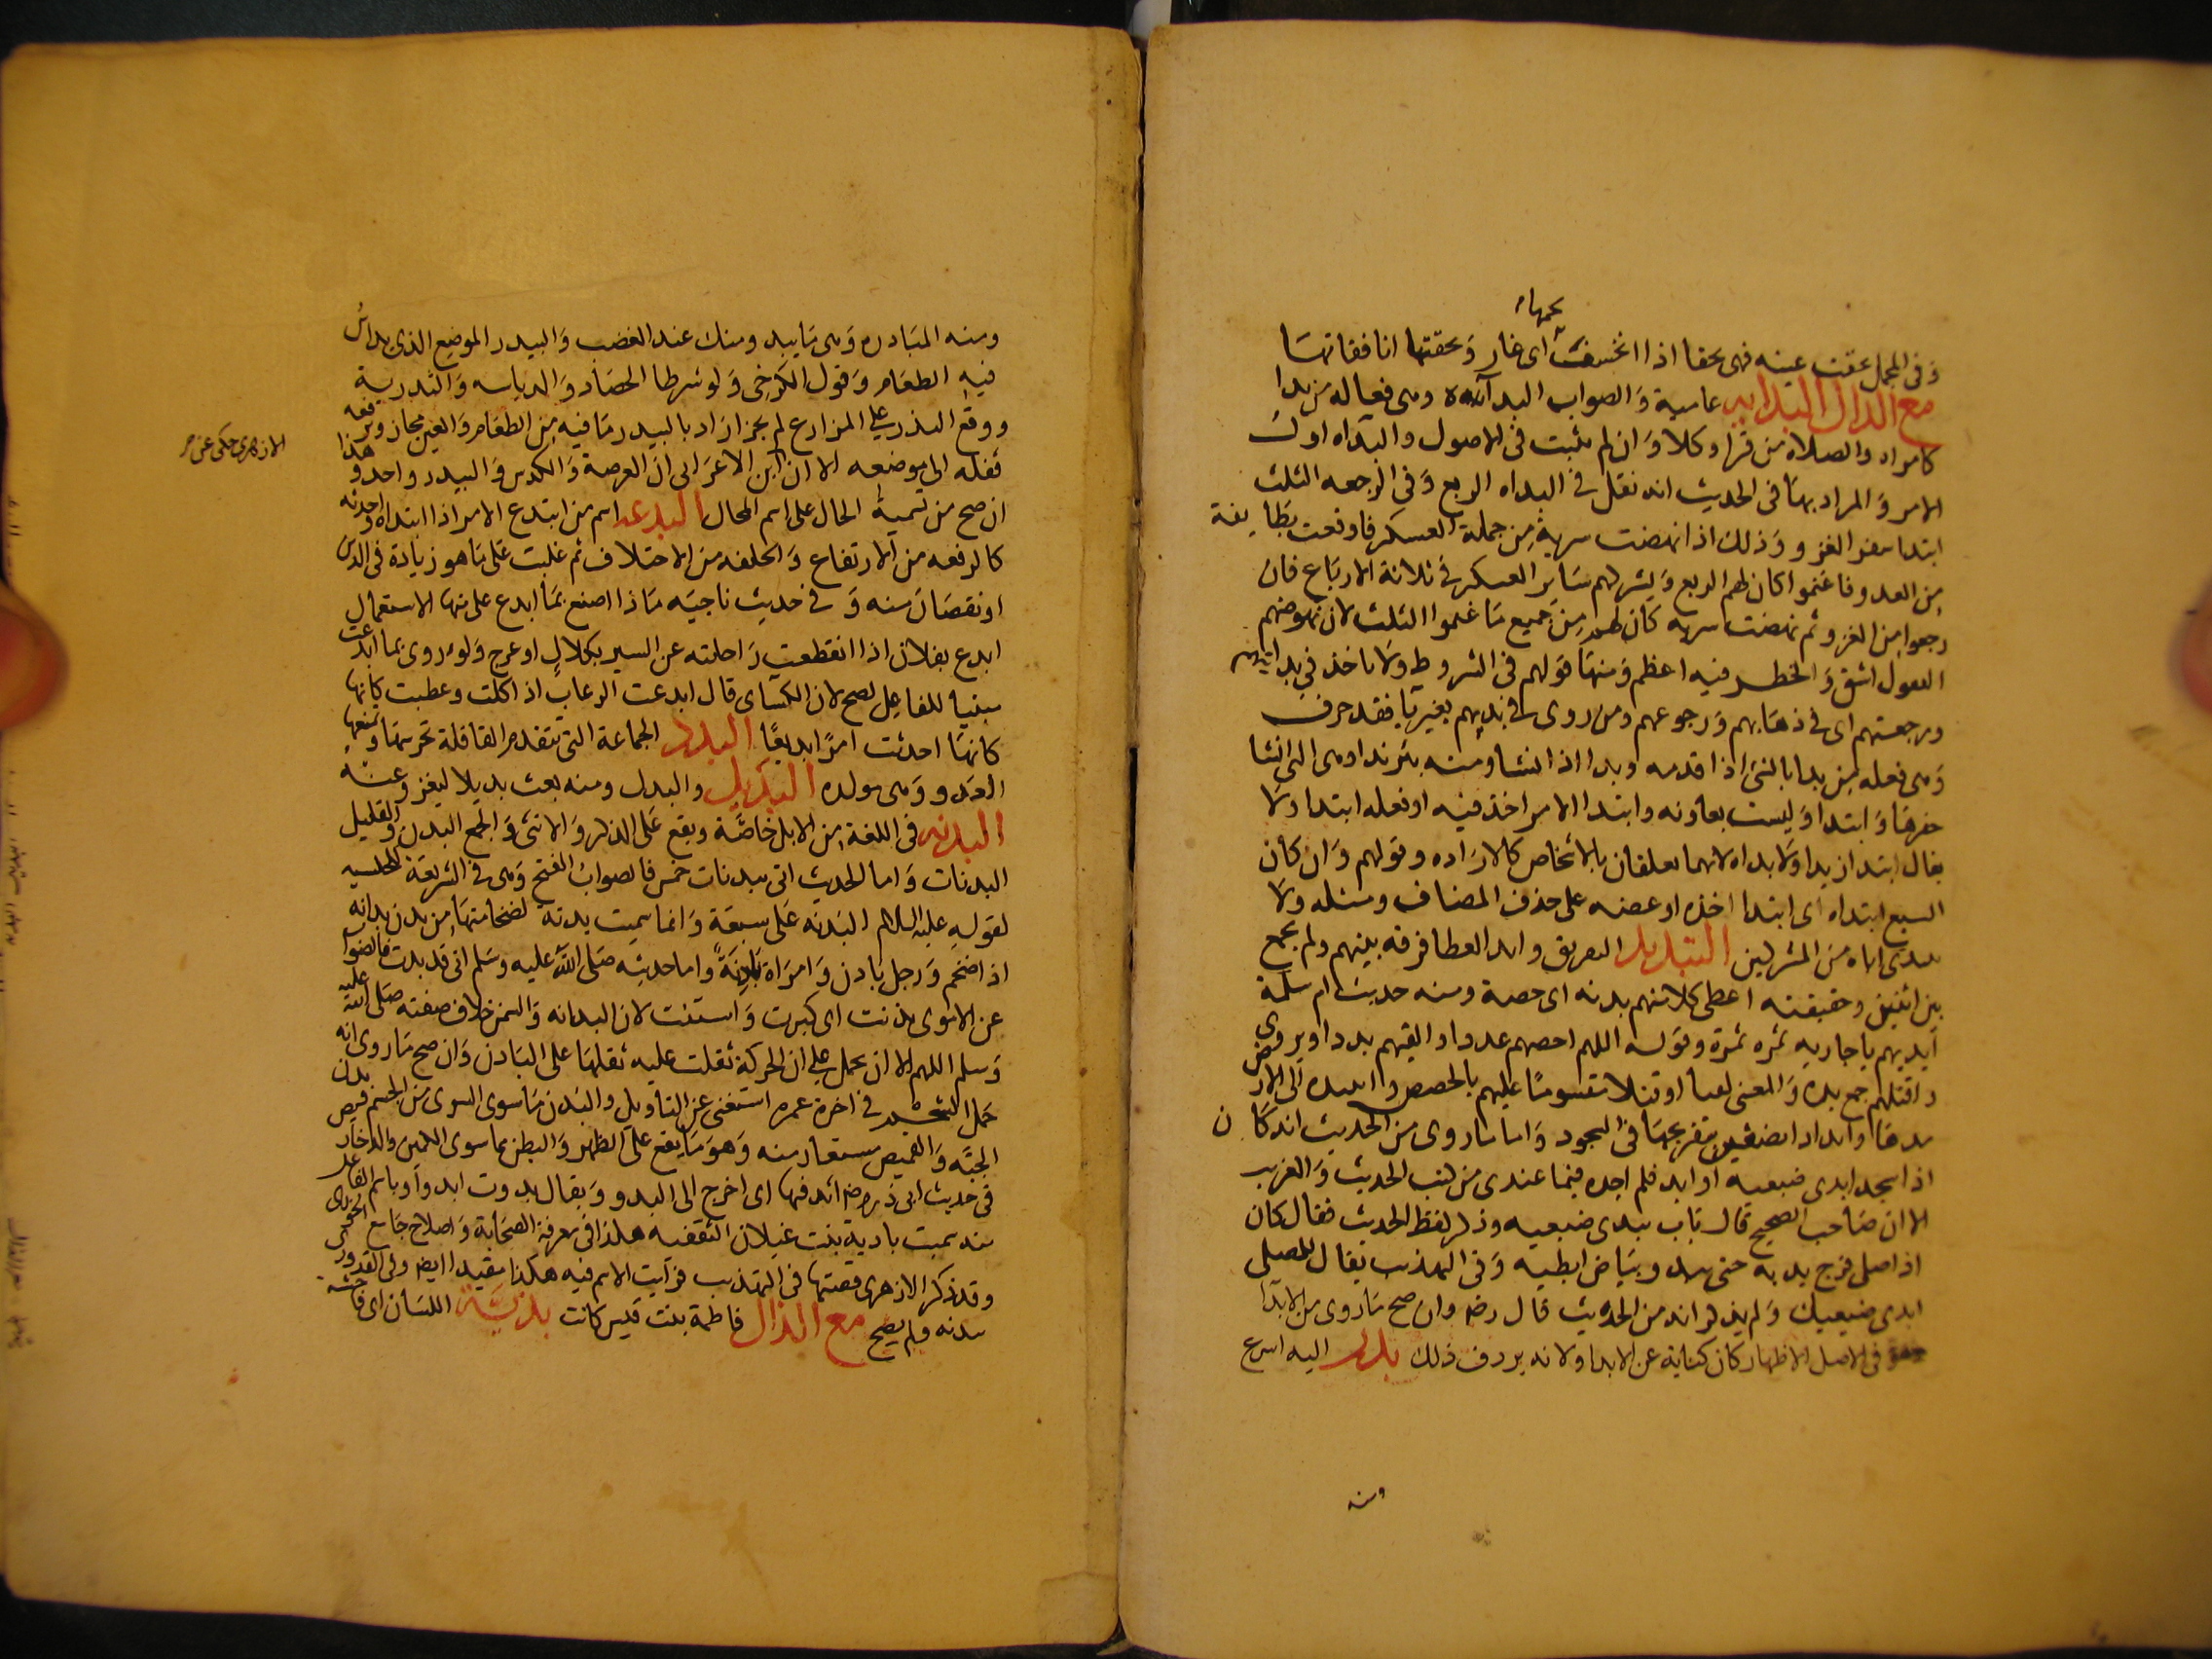 بخقها
وَفى المجمل بخقت عينه فهى بخقا اذا انخسفت اى غار وَبخقتها انا فقاتها
مع الدال البدايه عامية وَالصواب البدآءة وهى فعاله من بدا
كامراه والصلاه من قرا وكلا وَان لم يثبت فى الاصول والبداه اول
الامر وَالمراد بها فى الحديث انه نفل فى البداه الربع وَفى الرجعه الثلث
ابتدا سفر الغزو وَذلك اذا نهضت سرية مِن جملة العسكر فاوقعت بطايفة
مِن العدو فما غنموا كان لهم الربع وَيشركهم سَاير العسكر فى ثلاثة الارباع فان
رجعوا مِن الغزو ثم نهضت سريه كان لهم مِن جَميع مَا غنموا الثلث لان نهوضهم
القفول اشق وَالخطر فيه اعظم وَمنهَا قولهم فى الشروط وَلا ياخذ فى بداتهم
ورجعتهم اى فى ذهَابهم وَرجوعهم ومن روى فى بديهم بغير تا فقد حرف
وَهى فعله مِن بدا بالشئ اذا قدمه وبدا اذا انشا ومنه بئر بدا وهى التى انشا
حفرهَا وَابتدا وَليست بعاديه وابتدا الامر اخذ فيه او فعله ابتدا وَلا
يقال ابتدا زيدا وَلا بداه لانهما يعلقان بالاشخاص كالارَاده وقولهم وَان كان
السبع ابتداه اى ابتدا اخذه او عضه على حذف المضاف ومثله وَلا
يبتدى اباه مِن المشركين التبديد التفريق وابد العطا فرقه بينهم ولم يجمع
بين اثنين وحقيقته اعطى كلا منهم بدته اى حصة ومنه حديث ام سلمة
ابديهم يا جاريه تمره تمرة وقوله اللهم احصهم عددا والقهم بددا ويروى
واقتلهم جمع بده وَالمعنى لعنا او قتلا مقسومًا عليهم بالحصص وابد يده الى الارض
مدها وابداد الضبعين تفريجهَا فى السجود وَاما ما روى من الحديث انه كان
اذا سجد ابدى ضبعيه او ابد فلم اجده فيما عندى من كتب الحديث وَالغريب
الا ان صَاحب الصحيح قال باب يبدى ضبعيه وذكر لفظ الحديث فقال كان
اذا صلى فرج يديه حتى يبد وبيَاض ابطيه وَفى التهذيب يقال للمصلى
ابدى ضبعيك وَلم يذكر انه من الحديث قال رضه وان صح مَا روى من الابدا
وهو فى الاصل الاظهار كان كناية عن الابداد لانه يردف ذلك بدر اليه اسرع
ومنه
ومنه المبَادره وَهى مَا يبدر منك عند الغضب وَالبيدر الموضع الذى يداس
فيه الطعَام وَقول الكرخى وَلو شرطا الحصَاد وَالدياسه وَالتدرية
ووقع البذر على المزارع لم يجز اراد بالبيدر مَا فيه مِن الطعَام وَالعين مجاز ورفعه
نقله الى موضعه الا ان ابن الاعرَابى ان العرصة وَالكدس وَالبيدر واحد وهذا
الازهرى حكى عن
ان صح من تسمية الحال على اسم المحال البدعه اسم من ابتدع الامر اذا ابتداه واحدثه
كالرفعه من الارتفاع وَالخلفه من الاختلاف ثم غلبت عَلى مَا هو زيادة فى الدين
او نقصَان منه وَفى حديث ناجيَه مَاذا اصنع بمَا ابدع على منها الاستعمال
ابدع بفلان اذا انقطعت رَاحلته عن السير بكلال او عرج وَلو روى بما ابدعت
مبنيا للفاعِل لصح لان الكسَاى قال ابدعت الركاب اذا كلت وعطبت كانها
كانهَا احدثت امرًا بديعًا البدرة الجماعة التى تتقدم القافلة تحرسها وتمنعها
العَدو وَهى مولده البَديل والبدل ومنه بعث بديلا ليغزو عنه
البدنه فى اللغة مِن الابل خاصَّة ويقع عَلى الذكر وَالانثى وَالجمع البدن والقليل
البدنات وَاما الحديث اتى ببدنات خمس فالصواب الفتح وَهى فى الشريعَة للجنسيه
لقولِه عليه السلام البَدنه عَلى سبعَة وَانما سميت بدنه لضخامتهَا مِن بدن بدانه
اذا ضخم وَرجل بادن وَامرَاة بَادِنَةً واما حديثه صَلى الله عليه وسَلم انى قد بدنت فالصواب
عن الاموى بدّنت اى كبرت وَاسننت لان البدانه وَالسمن خلاف صفته صلى الله عليه
وَسلم اللهم الا ان يحمل على ان الحركة ثقلت عليه ثقلهَا على البَادن وَان صح مَا روى انه
حَمل الشحْم فى اخرة عمره استغنى عن التأويل والبَدن مَا سوى الشوى من الجسم وبدن
الجبَّه وَالقميص مستعار منه وَهوَ مَا يقع على الظهر وَالبطن مما سوى الكمين والدخاريص
فى حديث ابى ذر رضه ابد فيها اى اخرج الى البدو وَيقال بدوت ابدو وَباسم الفاعل
منه سميت بادية بنت غيلان الثقفيه هكذا فى معرفة الصحَابة وَاصلاح جَامع الحميدى
وقد ذكر الازهرى قصتها فى التهذيب فرَايت الاسم فيه هكذا مقيدا ايضا وفى القدورى
بدنه ولم يصح مع الذال فاطمة بنت قيس كانت بذيَّة اللسَان اى فاحشة